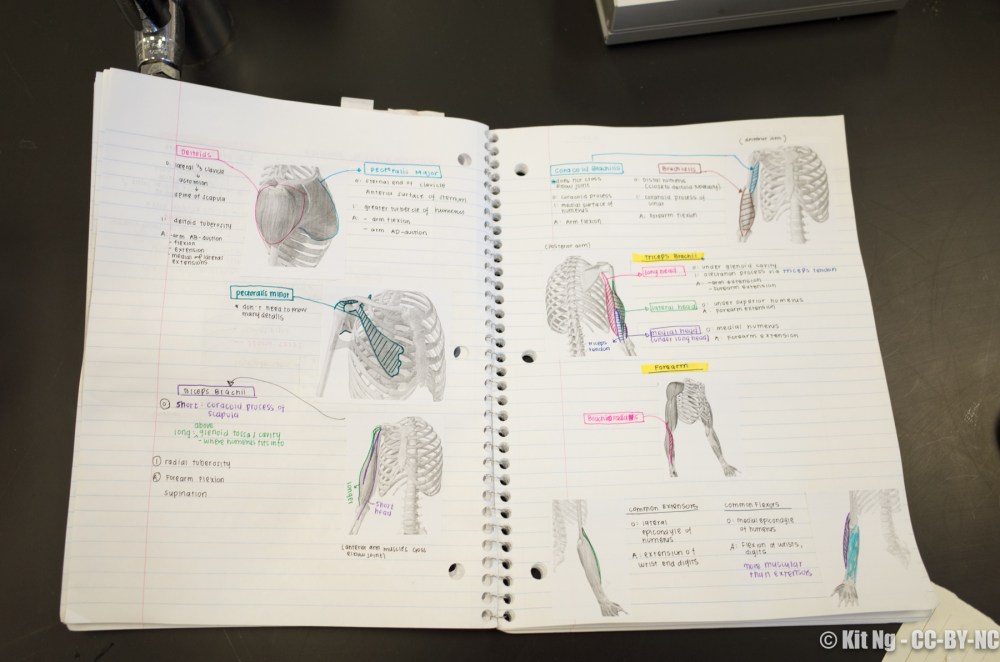 Deltoids
O: lateral 1/3 clavicle
acromion
spine of scapula
I: deltoid tuberosity
A: -arm AB-duction
- flexion
- extension
- medial of lateral
extensions
Pectoralis Major
O: sternal end of clavicle
Anterior surface of sternum
I: greater tubercle of humerus
A: - arm flexion
- arm AD-duction
pectoralis minor
* don't need to know
many details
Biceps Brachii
O short - coracoid process of
scapula
above
long - glenoid fossa / cavity
- where humerus fits into
I radial tuberosity
A Forearm flexion
supination
short
head
(anterior arm muscles cross
elbow joint)
(anterior arm)
Coracobrachilis
elbow joint
O: coracoid process
I: medial surface of
humerus
A: Arm flexion
Brachialis
O: distal humerus
I: coronoid process of
ulna
A: forearm flexion
(posterior arm)
Triceps Brachii
long head
O: under glenoid cavity
I: olecranon process via triceps tendon
A: -arm extension
-forearm extension
lateral head
O: under superior humerus
A: forearm extension
medial head
(under long head)
O: medial humerus
A: forearm extension
triceps
tendon
Forearm
Brachioradialis
common extensors
O: lateral
epicondyle of
humerus
A: extension of
wrist and digits
common flexors
O: medial epicondyle
of humerus
A: flexion of wrists,
digits
more muscular
than extensors
© Kit Ng - CC-BY-NC